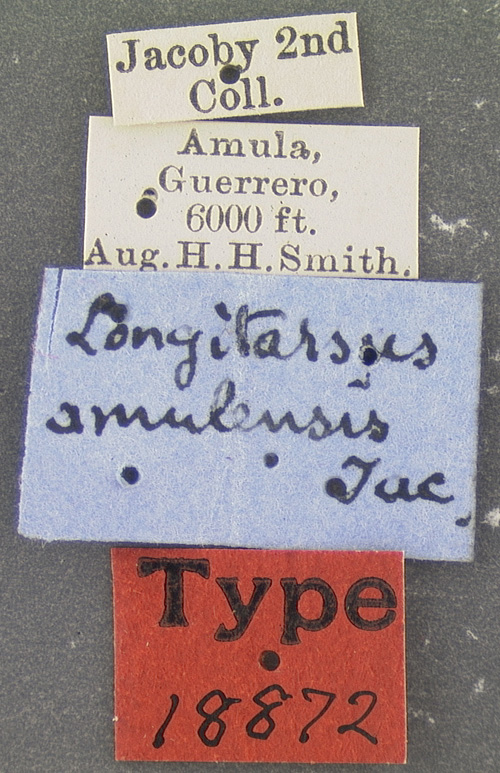 Jacoby 2nd
Coll.
Amula,
Guerrero,
6000 ft.
Aug. H. H. Smith.
Longitarsus
amulensis
Jac.
Type
18872